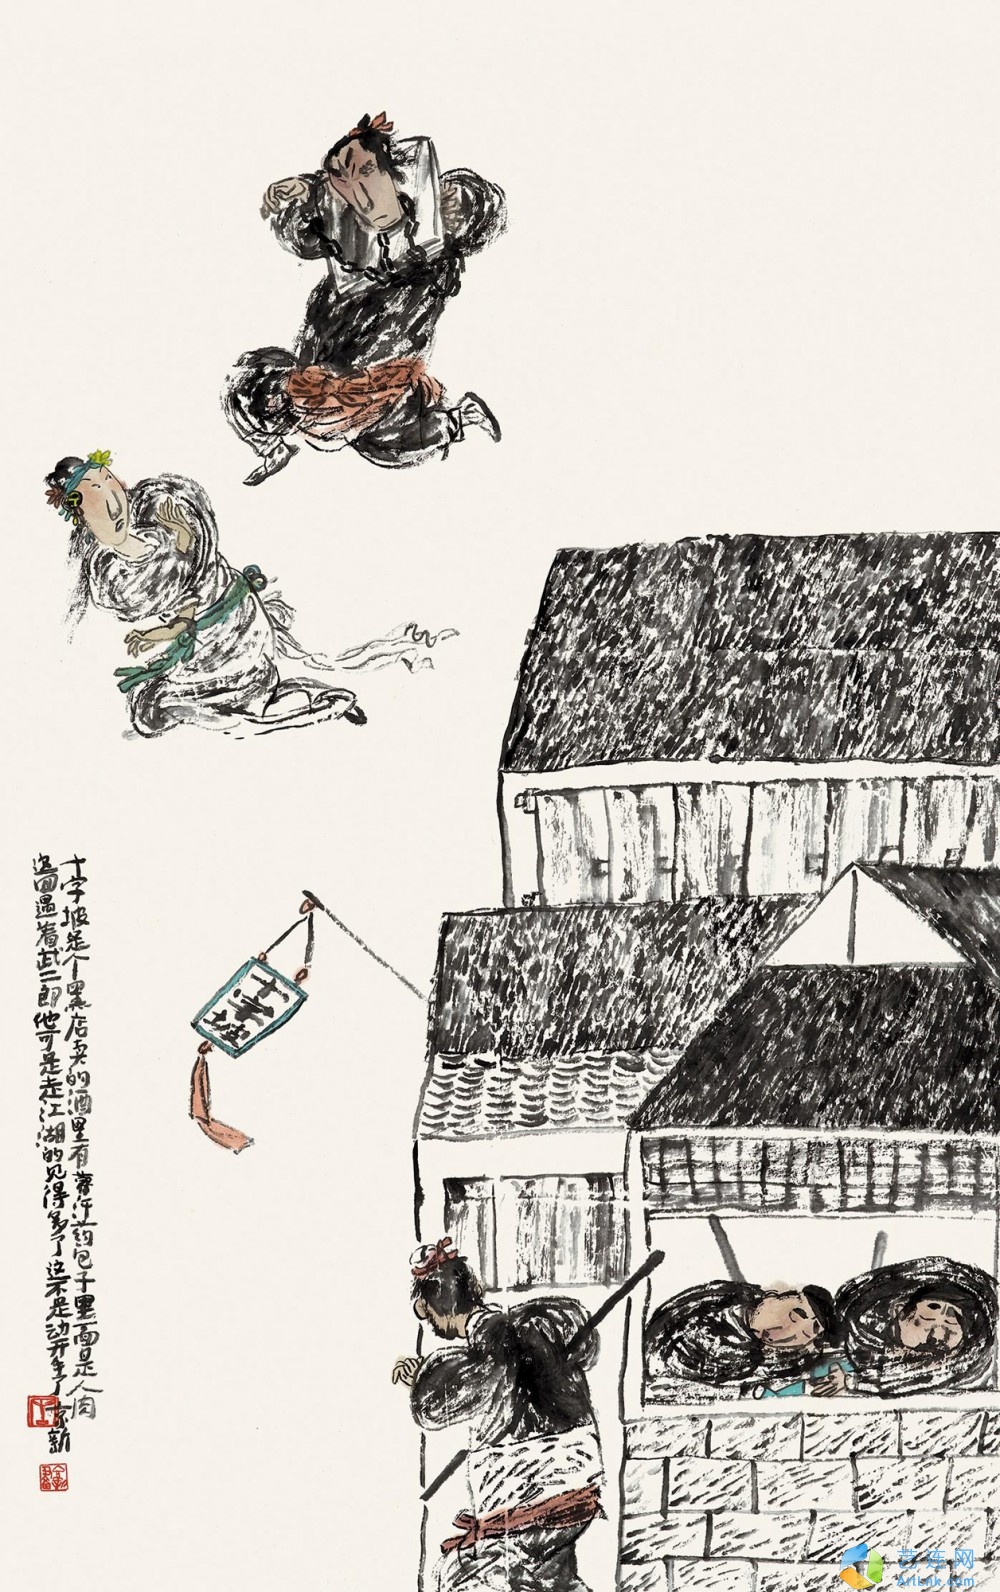 十字坡
十字坡是个黑店卖的酒里有蒙汗药包子里面是人肉
这回遇着武二郎他可是走江湖的见得多了这不是动开手了 京新
艺连网
ArtLnk.com